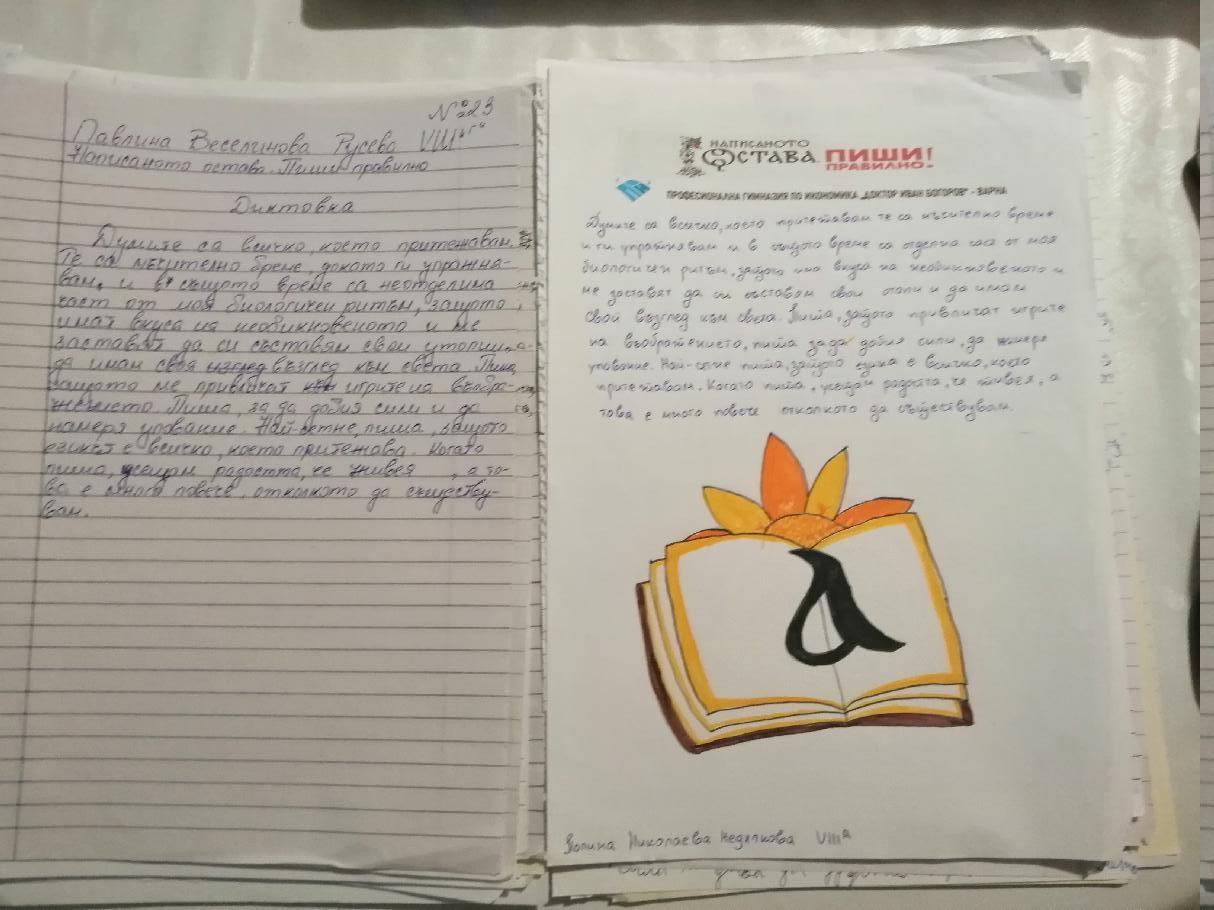 №23
Павлина Веселинова Русева VIII "г"
Написаното остава. Пиши правилно
Диктовка
Думите са всичко, което притежавам.
Те са мъчително бреме, докато ги упражня-
вам, и в същото време са неотделима
част от моя биологичен ритъм, защото
имат вкуса на необикновеното и ме
заставят да си съставям свои утопии,
да имам своя възглед към света. Пиша,
защото ме привличат игрите на въобра-
жението. Пиша, за да добия сили и да
намеря упование. Най-сетне, пиша, защото
езикът е всичко, което притежава. Когато
пиша, усещам радостта, че живея, а то-
ва е много повече, отколкото да съществу-
вам.
НАПИСАНОТО
ОСТАВА. ПИШИ
ПРАВИЛНО!
ПРОФЕСИОНАЛНА ГИМНАЗИЯ ПО ИКОНОМИКА „ДОКТОР ИВАН БОГОРОВ" - ВАРНА
Думите са всичко, което притежавам те са мъчително време
и ги упражнявам и в същото време са отделна част от моя
биологичен ритъм, защото има вкуса на необикновеното и
ме заставят да си съставям свои и да имам
свой възглед към света. Пиша, защото привличат игрите
на въображението, пиша за да добия сили, да намеря
упование. Най-сетне пиша, защото е всичко, което
притежавам. Когато пиша, усещам радоста, че живея, а
това е много повече отколкото да съществувам.
а
Николаева Недялкова VIIIа